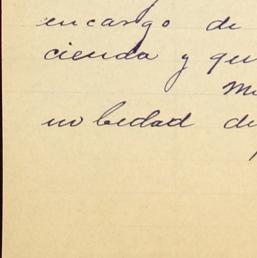 encargo de
cienda y qu
M
no bedad de